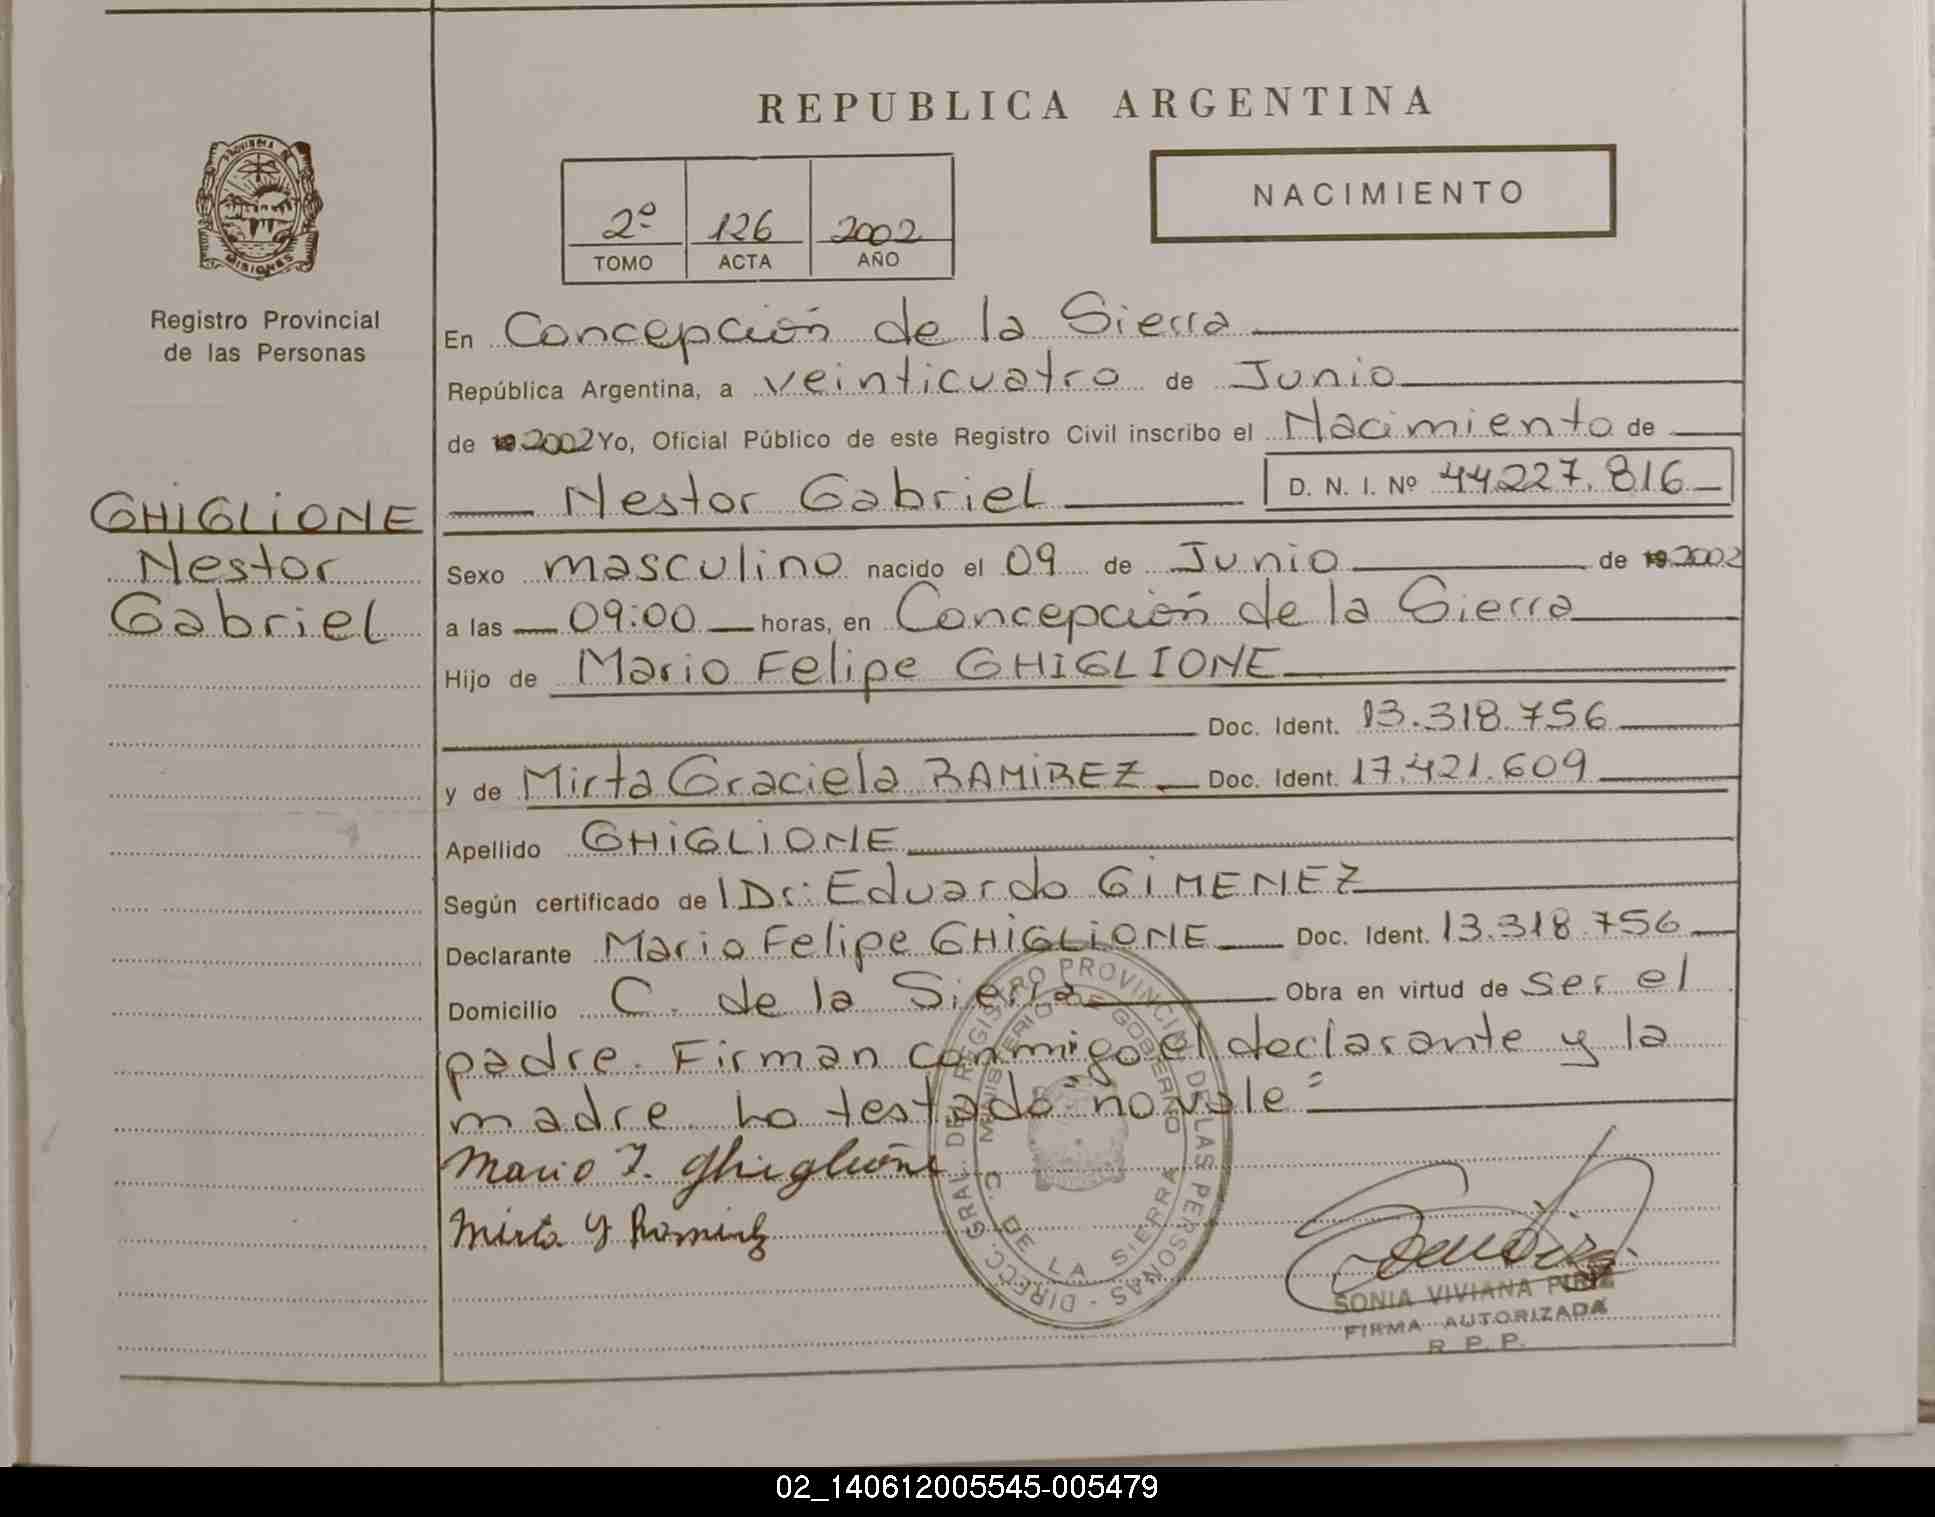 REPUBLICA ARGENTINA
PROVINCIA DE
MISIONES
Registro Provincial
de las Personas
GHIGLIONE
Nestor
Gabriel
2º 126 2002
TOMO ACTA AÑO
NACIMIENTO
En Concepción de la Sierra
República Argentina, a veinticuatro de Junio
de 19 2002 Yo, Oficial Público de este Registro Civil inscribo el Nacimiento de
Nestor Gabriel D. N. I. Nº 44227.816
Sexo masculino nacido el 09 de Junio de 19 2002
a las 09:00 horas, en Concepción de la Sierra
Hijo de Mario Felipe GHIGLIONE
Doc. Ident. 13.318.756
y de Mirta Graciela RAMIREZ Doc. Ident. 17.421.609
Apellido GHIGLIONE
Según certificado de l Dr: Eduardo GIMENEZ
Declarante Mario Felipe GHIGLIONE Doc. Ident. 13.318.756
Domicilio C. de la Sierra Obra en virtud de ser el
padre. Firman conmigo el declarante y la
madre. Lo testado "no vale"
Mario F. Ghiglione
Mirta G Ramirez
DIRECC. GRAL. DEL REGISTRO PROVINCIAL DE LAS PERSONAS -
MINISTERIO DE GOBIERNO
C. DE LA SIERRA
SONIA VIVIANA
FIRMA AUTORIZADA
R. P. P.
02_140612005545-005479